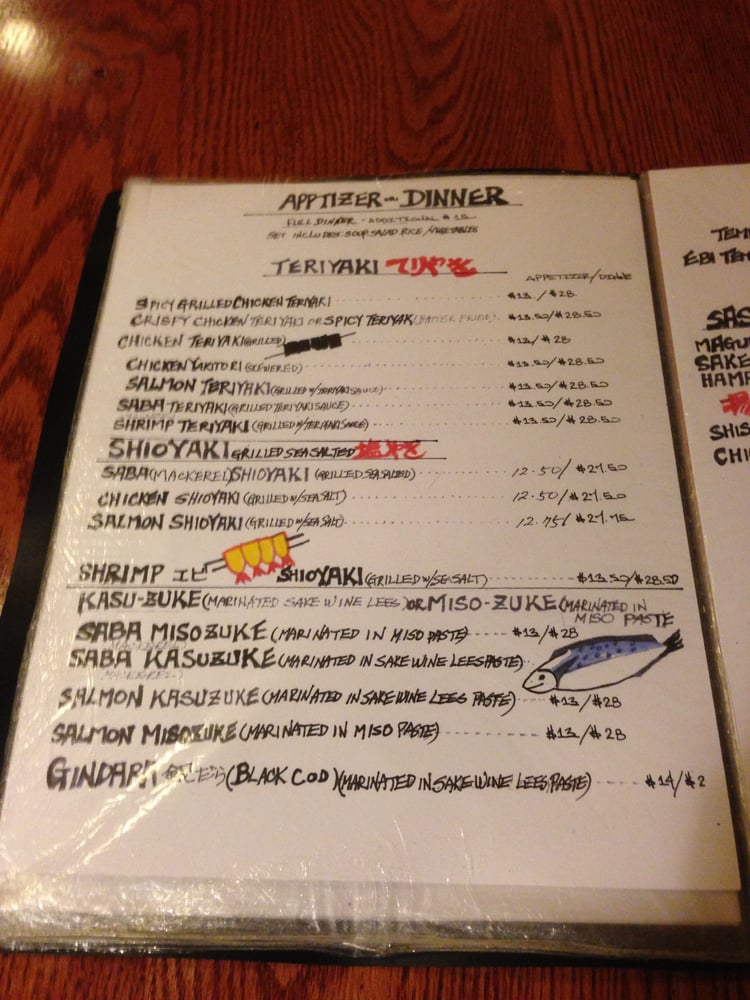 APPTIZER or DINNER
FULL DINNER - ADDITIONAL $15
SET INCLUDES: SOUP SALAD RICE / VEGETABLES
TERIYAKI てりやき
APPETIZER / DINNE
SPICY GRILLED CHICKEN TERIYAKI $13 / $28
CRISPY CHICKEN TERIYAKI OR SPICY TERIYAK $13.50/$28.50
CHICKEN TERIYAKI (GRILLED) $13/$28
CHICKEN YAKITORI (SKEWERED) $13.50/$28.50
SALMON TERIYAKI (GRILLED W/TERIYAKI SAUCE) $13.50/$28.50
SABA TERIYAKI (GRILLED TERIYAKI SAUCE) $13.50/$28.50
SHRIMP TERIYAKI (GRILLED W/TERIYAKI SAUCE) $13.50/$28.50
SHIOYAKI GRILLED SEA SALTED 塩やき
SABA (MACKEREL) SHIOYAKI (GRILLED SEA SALTED) 12.50/$27.50
CHICKEN SHIOYAKI (GRILLED W/SEA SALT) 12.50/$27.50
SALMON SHIOYAKI (GRILLED W/SEA SALT) 12.75/$27.75
SHRIMP エビ SHIOYAKI (GRILLED W/SEA SALT) $13.50/$28.50
KASU-ZUKE (MARINATED SAKE WINE LEES) OR MISO-ZUKE (MARINATED IN
MISO PASTE
SABA MISOZUKE (MARINATED IN MISO PASTE) $13/$28
MACKEREL
SABA KASUZUKE (MARINATED IN SAKE WINE LEES PASTE)
MACKEREL
SALMON KASUZUKE (MARINATED IN SAKE WINE LEES PASTE) $13/$28
SALMON MISOZUKE (MARINATED IN MISO PASTE) $13/$28
GINDARA (BLACK COD) (MARINATED IN SAKE WINE LEES PASTE) $14/$2
TEM
EBI TEM
SAS
MAGU
SAKE
HAM
SHIS
CHI